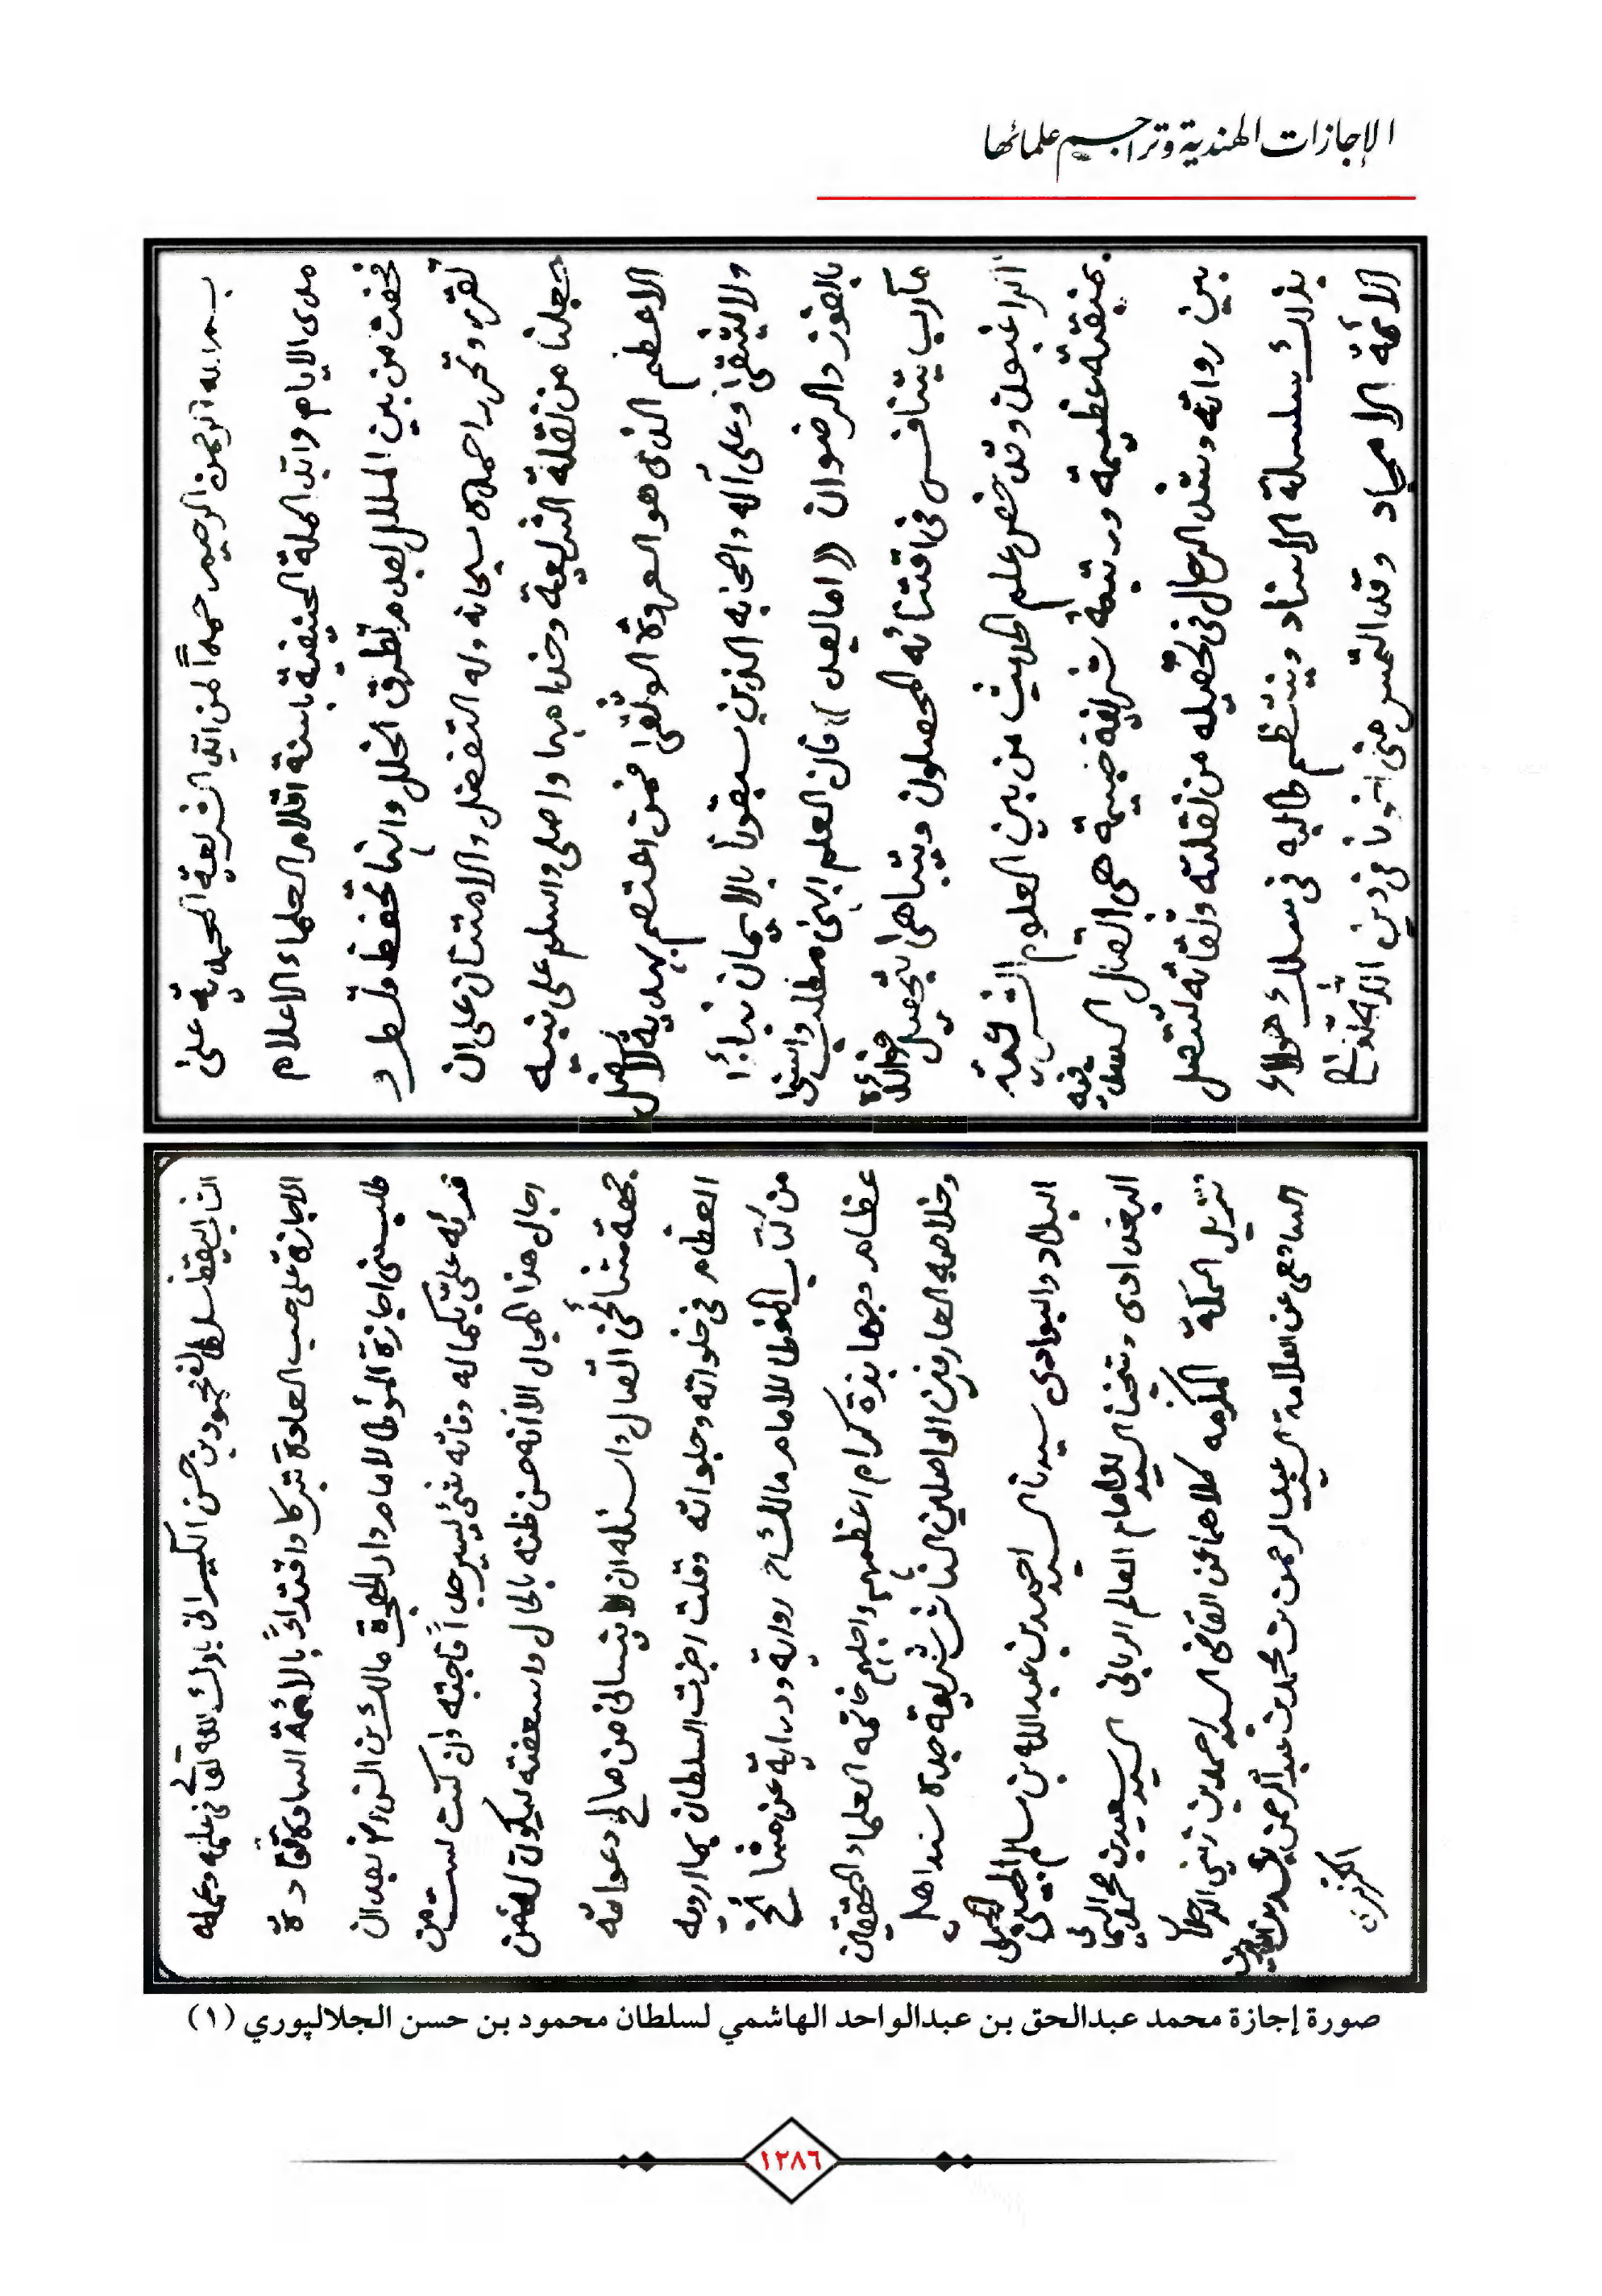 الإجازات الهندية وتراجم علمائها
بسم الله الرحمن الرحيم حمداً لمن ايد الشريعة المحمدية على
مدى الايام وابد الملة الحنيفية باسنة اقلام العلماء الاعلام
فحفت من بين الملل لعدم تطرق الخلل وانها تحفظ وتسطر و
تقرر وتحرر احمده سبحانه وله التفضل والامتنان على ان
جعلنا من نقلة الشريعة وخدامها واصلي واسلم على نبيه
الاعظم الذي هو العروة الوثقى فمن اعتصم بهديه لا يضل
ولا يشقى وعلى آله واصحابه الذين سبقونا بالايمان
بالفوز والرضوان ((اما بعد)) فان العلم ابهى مطلب واسنى
مآرب يتنافس في اقتنائه المحصلون ويتباهى بتحصيل
الراغبون وقد خص علم الحديث من بين العلوم الشريفة
بمنقبة عظيمة ورتبة شريفة جسيمة هي اتصال السند فيه
بين رواته وشد الرحال في تحصيله من نقلته وثقاته لتتصل
بذلك سلسلة الاسناد وينتظم طالبه في سلك هولاء
الائمة الامجاد وقد التمس مني اخونا في دين الله
سلطان محمود بن حسن الكبيراني بارك الله تعالى في علمه وعمله
الاجازة على حسب العادة تبركا واقتداءً بالائمة السادة القادة
طلب مني اجازة المؤطا للامام دار الهجرة مالك بن انس رض بعد ان
قرئه عليّ بكماله وفاته شئ يسير جداً فاجبته وان كنت لست من
رجال هذا المجال الا انه حسن ظنه بالحال واسعفته ليكون له من
جهة مشائخي اتصال واسئله ان لا ينساني من صالح دعواته
العظام في خلواته وجلواته وقلت اجزت السلطان بما ارويه
من كتاب المؤطا للامام مالك رواية ودراية عن مشائخ
عظام وجهابذة كرام اعظمهم واجلهم خاتمه العلماء المحققين
وخلاصه العارفين الواصلين الناشر شريعة جده سند اهل
البلاد والبوادي سيدنا السيد احمد بن عبد الله بن سالم
البغدادى وشيخنا السيد الامام العالم الربانى السيد سعيد بن محمد اليمانى
نزيل المكة المكرمه كلاهما عن القاضى السيد احمد بن زيني الدحلان
الشافعى عن العلامة السيد عبد الرحمن بن محمد بن عبد الرحمن
الكزبرى
صورة إجازة محمد عبدالحق بن عبدالواحد الهاشمي لسلطان محمود بن حسن الجلالپوري (١)
١٢٨٦